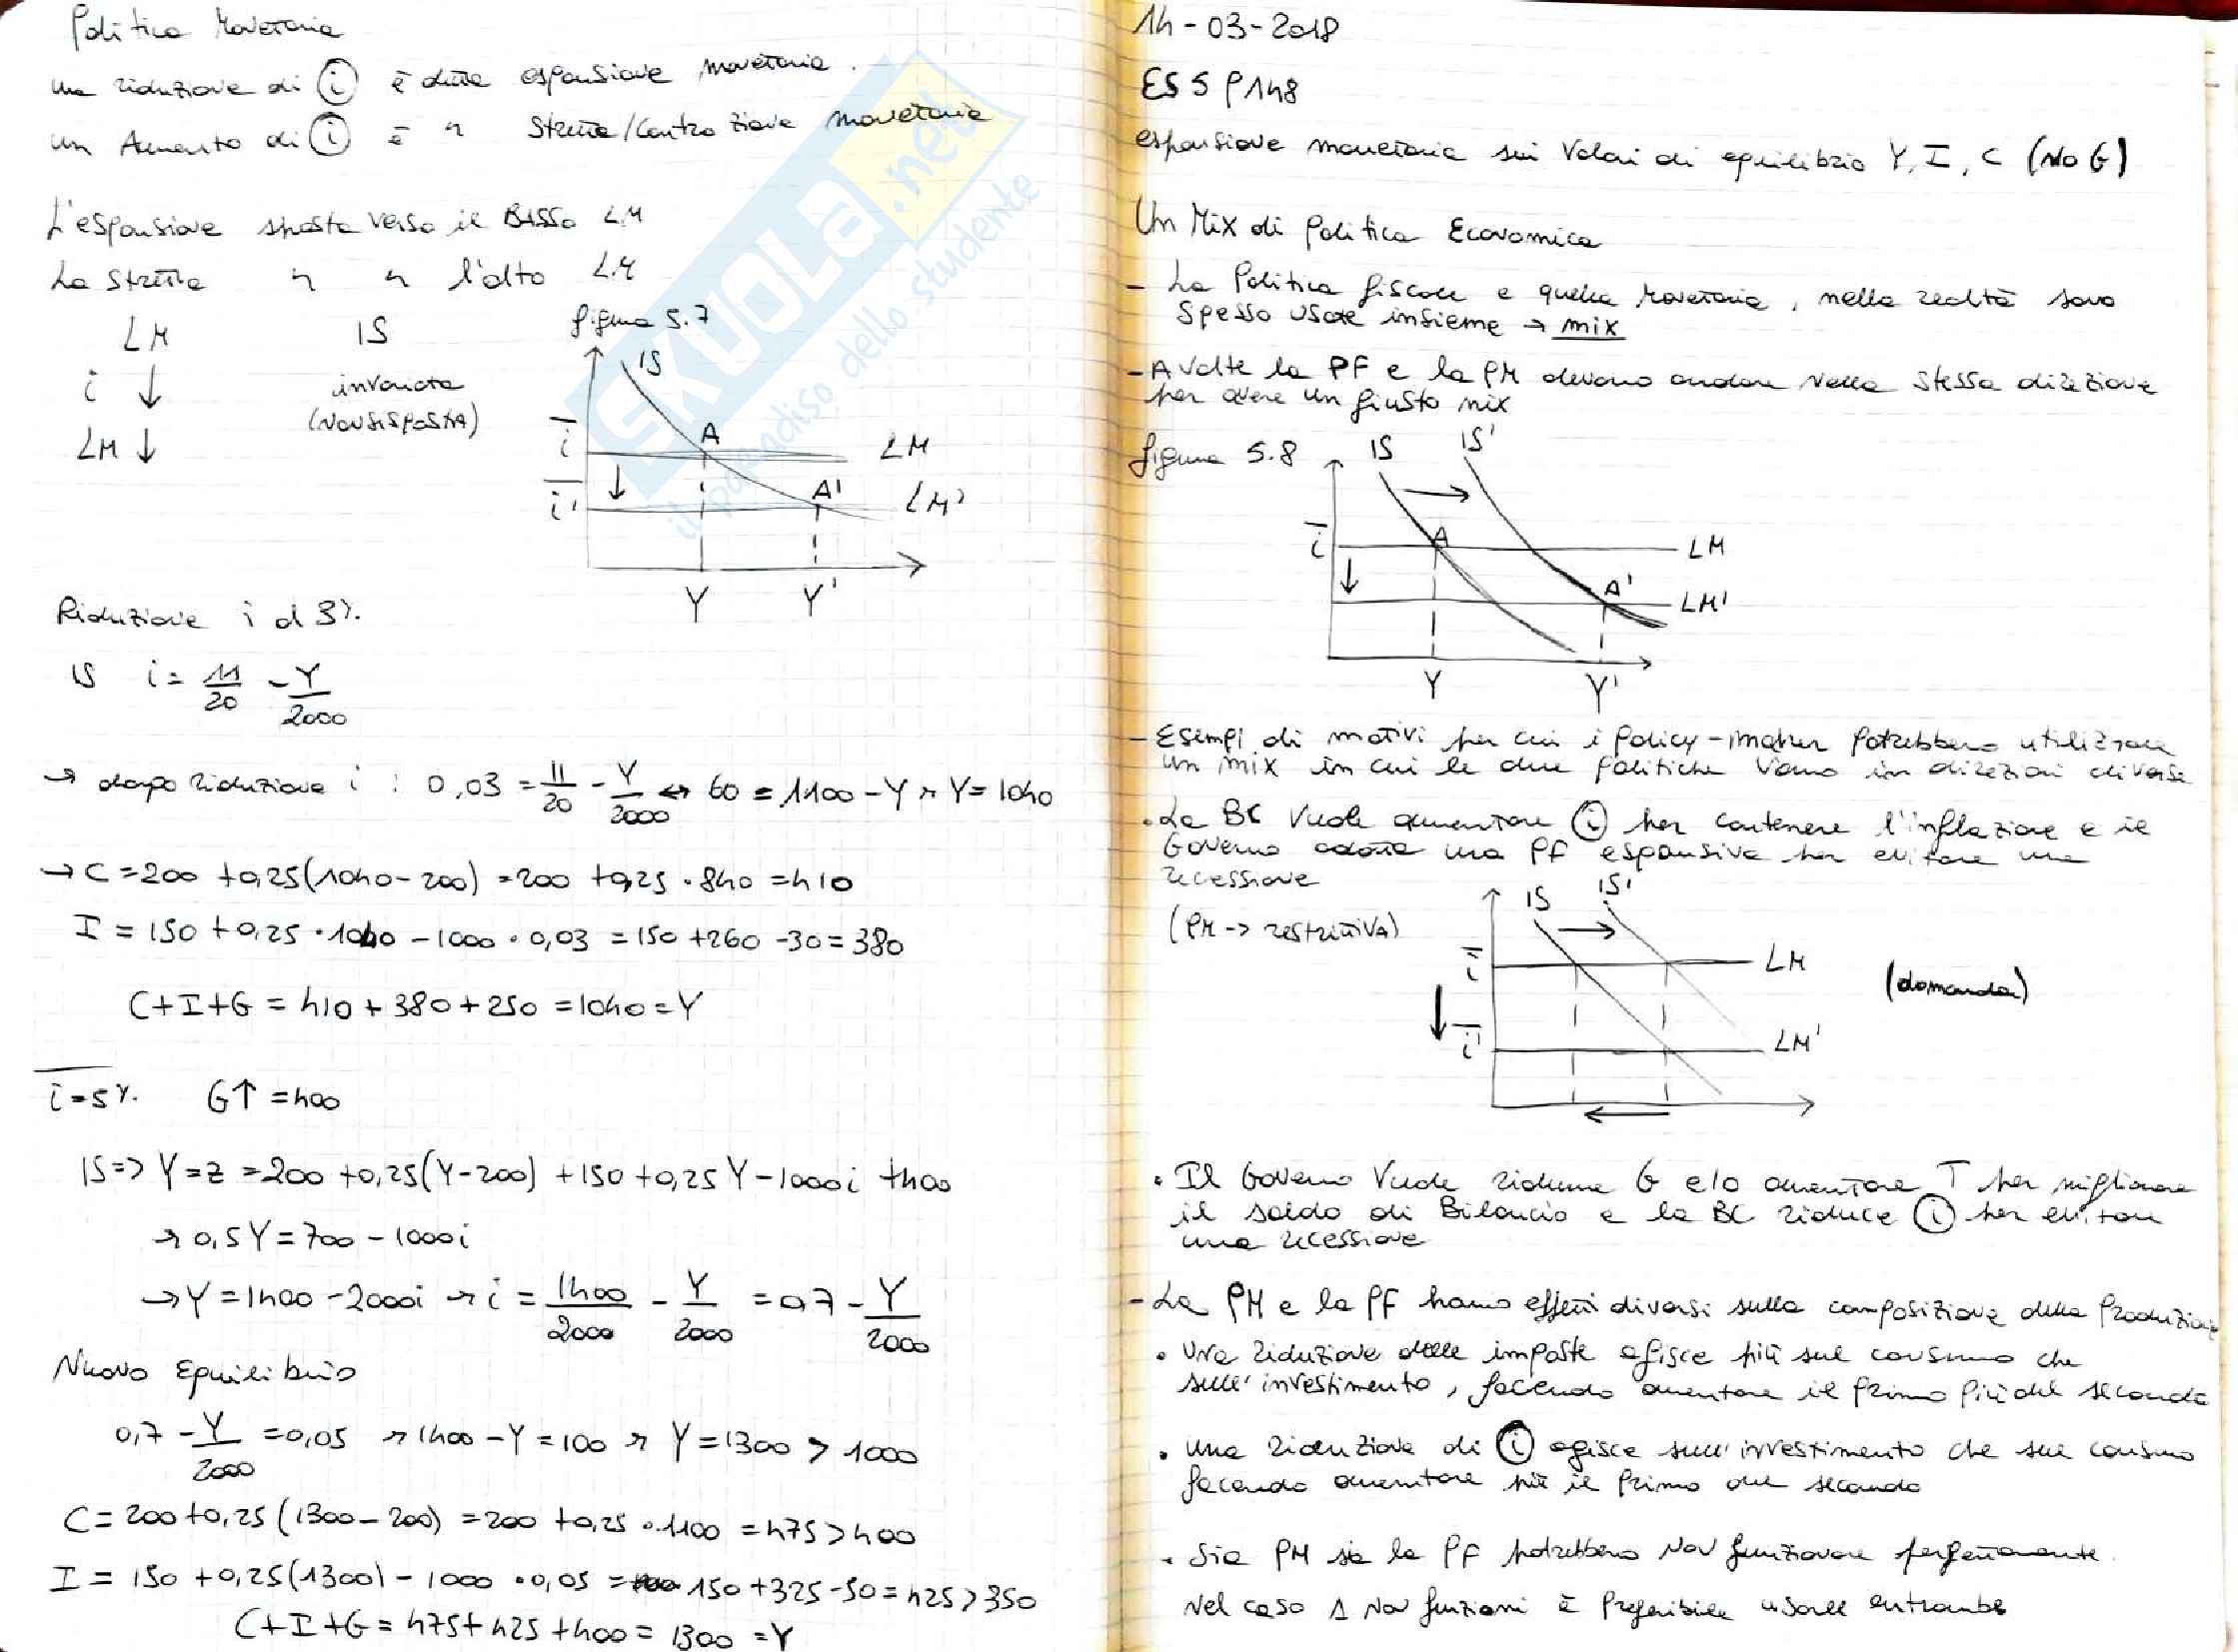 Politica Monetaria
una riduzione di i è detta espansione monetaria.
un Aumento di i è " Stretta/Contrazione monetaria
L'espansione sposta verso il BASSO LM
La Stretta " " l'alto LM
LM IS
i ↓ invariata
(NON SI SPOSTA)
LM ↓
figura 5.7
IS
A
i LM
A'
i' LM'
Y Y'
Riduzione i al 3%.
IS i = 11/20 - Y/2000
→ dopo riduzione i : 0,03 = 11/20 - Y/2000 ↔ 60 = 1100 - Y → Y = 1040
→ C = 200 + 0,25(1040 - 200) = 200 + 0,25 · 840 = 410
I = 150 + 0,25 · 1040 - 1000 · 0,03 = 150 + 260 - 30 = 380
C+I+G = 410 + 380 + 250 = 1040 = Y
i = 5%. G↑ = 400
IS => Y = Z = 200 + 0,25(Y-200) + 150 + 0,25Y - 1000i + 400
→ 0,5Y = 700 - 1000i
→ Y = 1400 - 2000i → i = 1400/2000 - Y/2000 = 0,7 - Y/2000
Nuovo Equilibrio
0,7 - Y/2000 = 0,05 → 1400 - Y = 100 → Y = 1300 > 1000
C = 200 + 0,25(1300 - 200) = 200 + 0,25 · 1100 = 475 > 400
I = 150 + 0,25(1300) - 1000 · 0,05 = 150 + 325 - 50 = 425 > 350
C+I+G = 475 + 425 + 400 = 1300 = Y
14-03-2018
ES 5 P148
espansione monetaria sui Valori di equilibrio Y, I, C (NO G)
Un Mix di Politica Economica
- La Politica fiscale e quella Monetaria, nella realtà sono
spesso usate insieme → mix
- A volte la PF e la PM devono andare nella stessa direzione
per avere un giusto mix
figura 5.8
IS IS'
A
i LM
A'
LM'
Y Y'
- Esempi di motivi per cui i policy-maker potrebbero utilizzare
un mix in cui le due politiche vanno in direzioni diverse
• La BC vuole aumentare i per contenere l'inflazione e il
Governo adotta una PF espansiva per evitare una
recessione
(PM -> restrittiva)
IS IS'
i LM
(domanda)
i' LM'
• Il Governo Vuole ridurre G e/o aumentare T per migliorare
il saldo di Bilancio e la BC riduce i per evitare
una recessione
- La PM e la PF hanno effetti diversi sulla composizione della Produzione
• Una riduzione delle imposte agisce più sul consumo che
sull'investimento, facendo aumentare il primo più del secondo
• Una riduzione di i agisce sull'investimento che sul consumo
facendo aumentare più il primo che secondo
• Sia PM sia la PF potrebbero Non funzionare perfettamente.
Nel caso 1 Non funzioni è Preferibile usare entrambe
SKUOLA.net
il paradiso dello studente